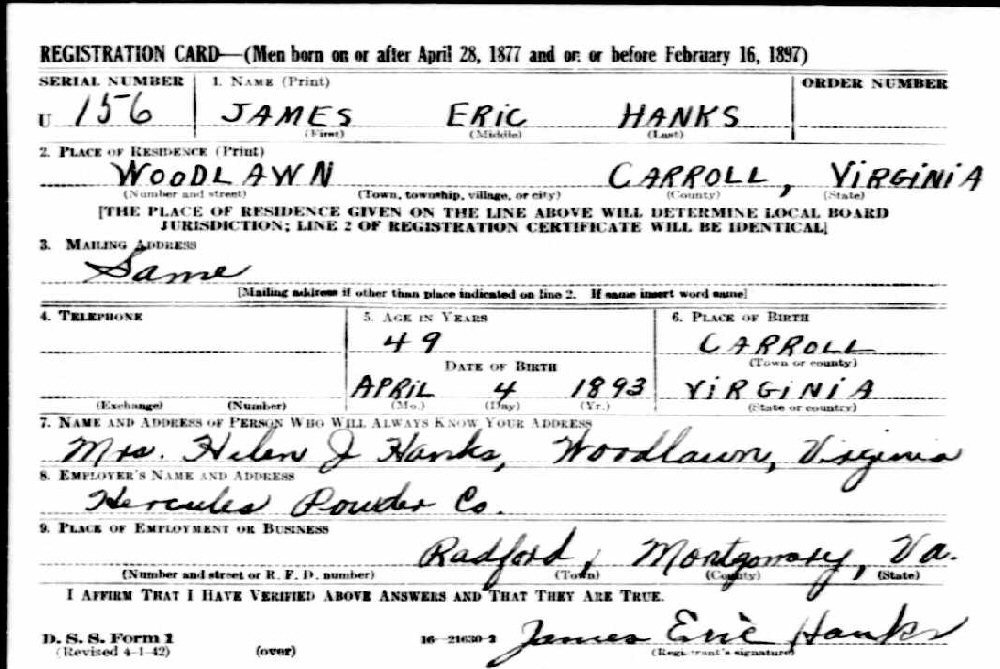 REGISTRATION CARD—(Men born on or after April 28, 1877 and on or before February 16, 1897)
SERIAL NUMBER 1. NAME (Print) ORDER NUMBER
U 156 JAMES ERIC HANKS
(First) (Middle) (Last)
2. PLACE OF RESIDENCE (Print)
WOODLAWN CARROLL, VIRGINIA
(Number and street) (Town, township, village, or city) (County) (State)
[THE PLACE OF RESIDENCE GIVEN ON THE LINE ABOVE WILL DETERMINE LOCAL BOARD
JURISDICTION; LINE 2 OF REGISTRATION CERTIFICATE WILL BE IDENTICAL]
3. MAILING ADDRESS
Same
[Mailing address if other than place indicated on line 2. If same insert word same]
4. TELEPHONE 5. AGE IN YEARS 6. PLACE OF BIRTH
49 CARROLL
DATE OF BIRTH (Town or county)
APRIL 4 1893 VIRGINIA
(Exchange) (Number) (Mo.) (Day) (Yr.) (State or country)
7. NAME AND ADDRESS OF PERSON WHO WILL ALWAYS KNOW YOUR ADDRESS
Mrs. Helen J Hanks, Woodlawn, Virginia
8. EMPLOYER'S NAME AND ADDRESS
Hercules Powder Co.
9. PLACE OF EMPLOYMENT OR BUSINESS
Radford, Montgomary, Va.
(Number and street or R. F. D. number) (Town) (County) (State)
I AFFIRM THAT I HAVE VERIFIED ABOVE ANSWERS AND THAT THEY ARE TRUE.
D. S. S. Form 1 16—21630-2 James Eric Hanks
(Revised 4-1-42) (over) (Registrant's signature)